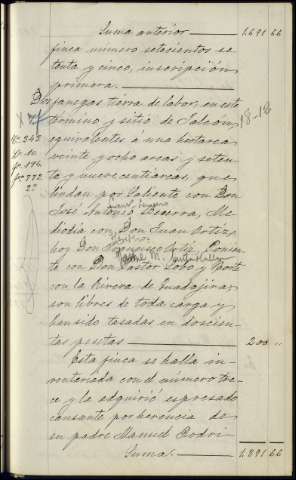 Suma anterior 1,691 66
finca número setecientos se-
tenta y cinco, inscripción
primera.
Dos fanegas tierra de labor, en este
término y sitio de Falcón, 18-18
equivalentes a una hectarea
veinte y ocho areas y seten-
ta y nueve centiareas, que
lindan por Saliente con Don
José Antonio Becerra, Me-
diodia con Don Juan Ortiz
hoy Don Francisco Ortiz, Ponien-
te con Don Pastor Lobo y Norte
con la Rivera de Guadajira:
son libres de toda carga y
han sido tasadas en doscien-
tas pesetas 200 "
Esta finca se halla in-
ventariada con el número tre-
ce y la adquirió expresado
causante por herencia de
su padre Manuel Rodri-
Suma. 1,891 66